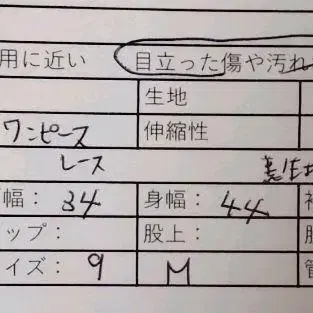 用に近い 目立った傷や汚れ
生地
ワンピース 伸縮性
レース 表生地
幅：34 身幅：44
ップ： 股上：
イズ：9 M